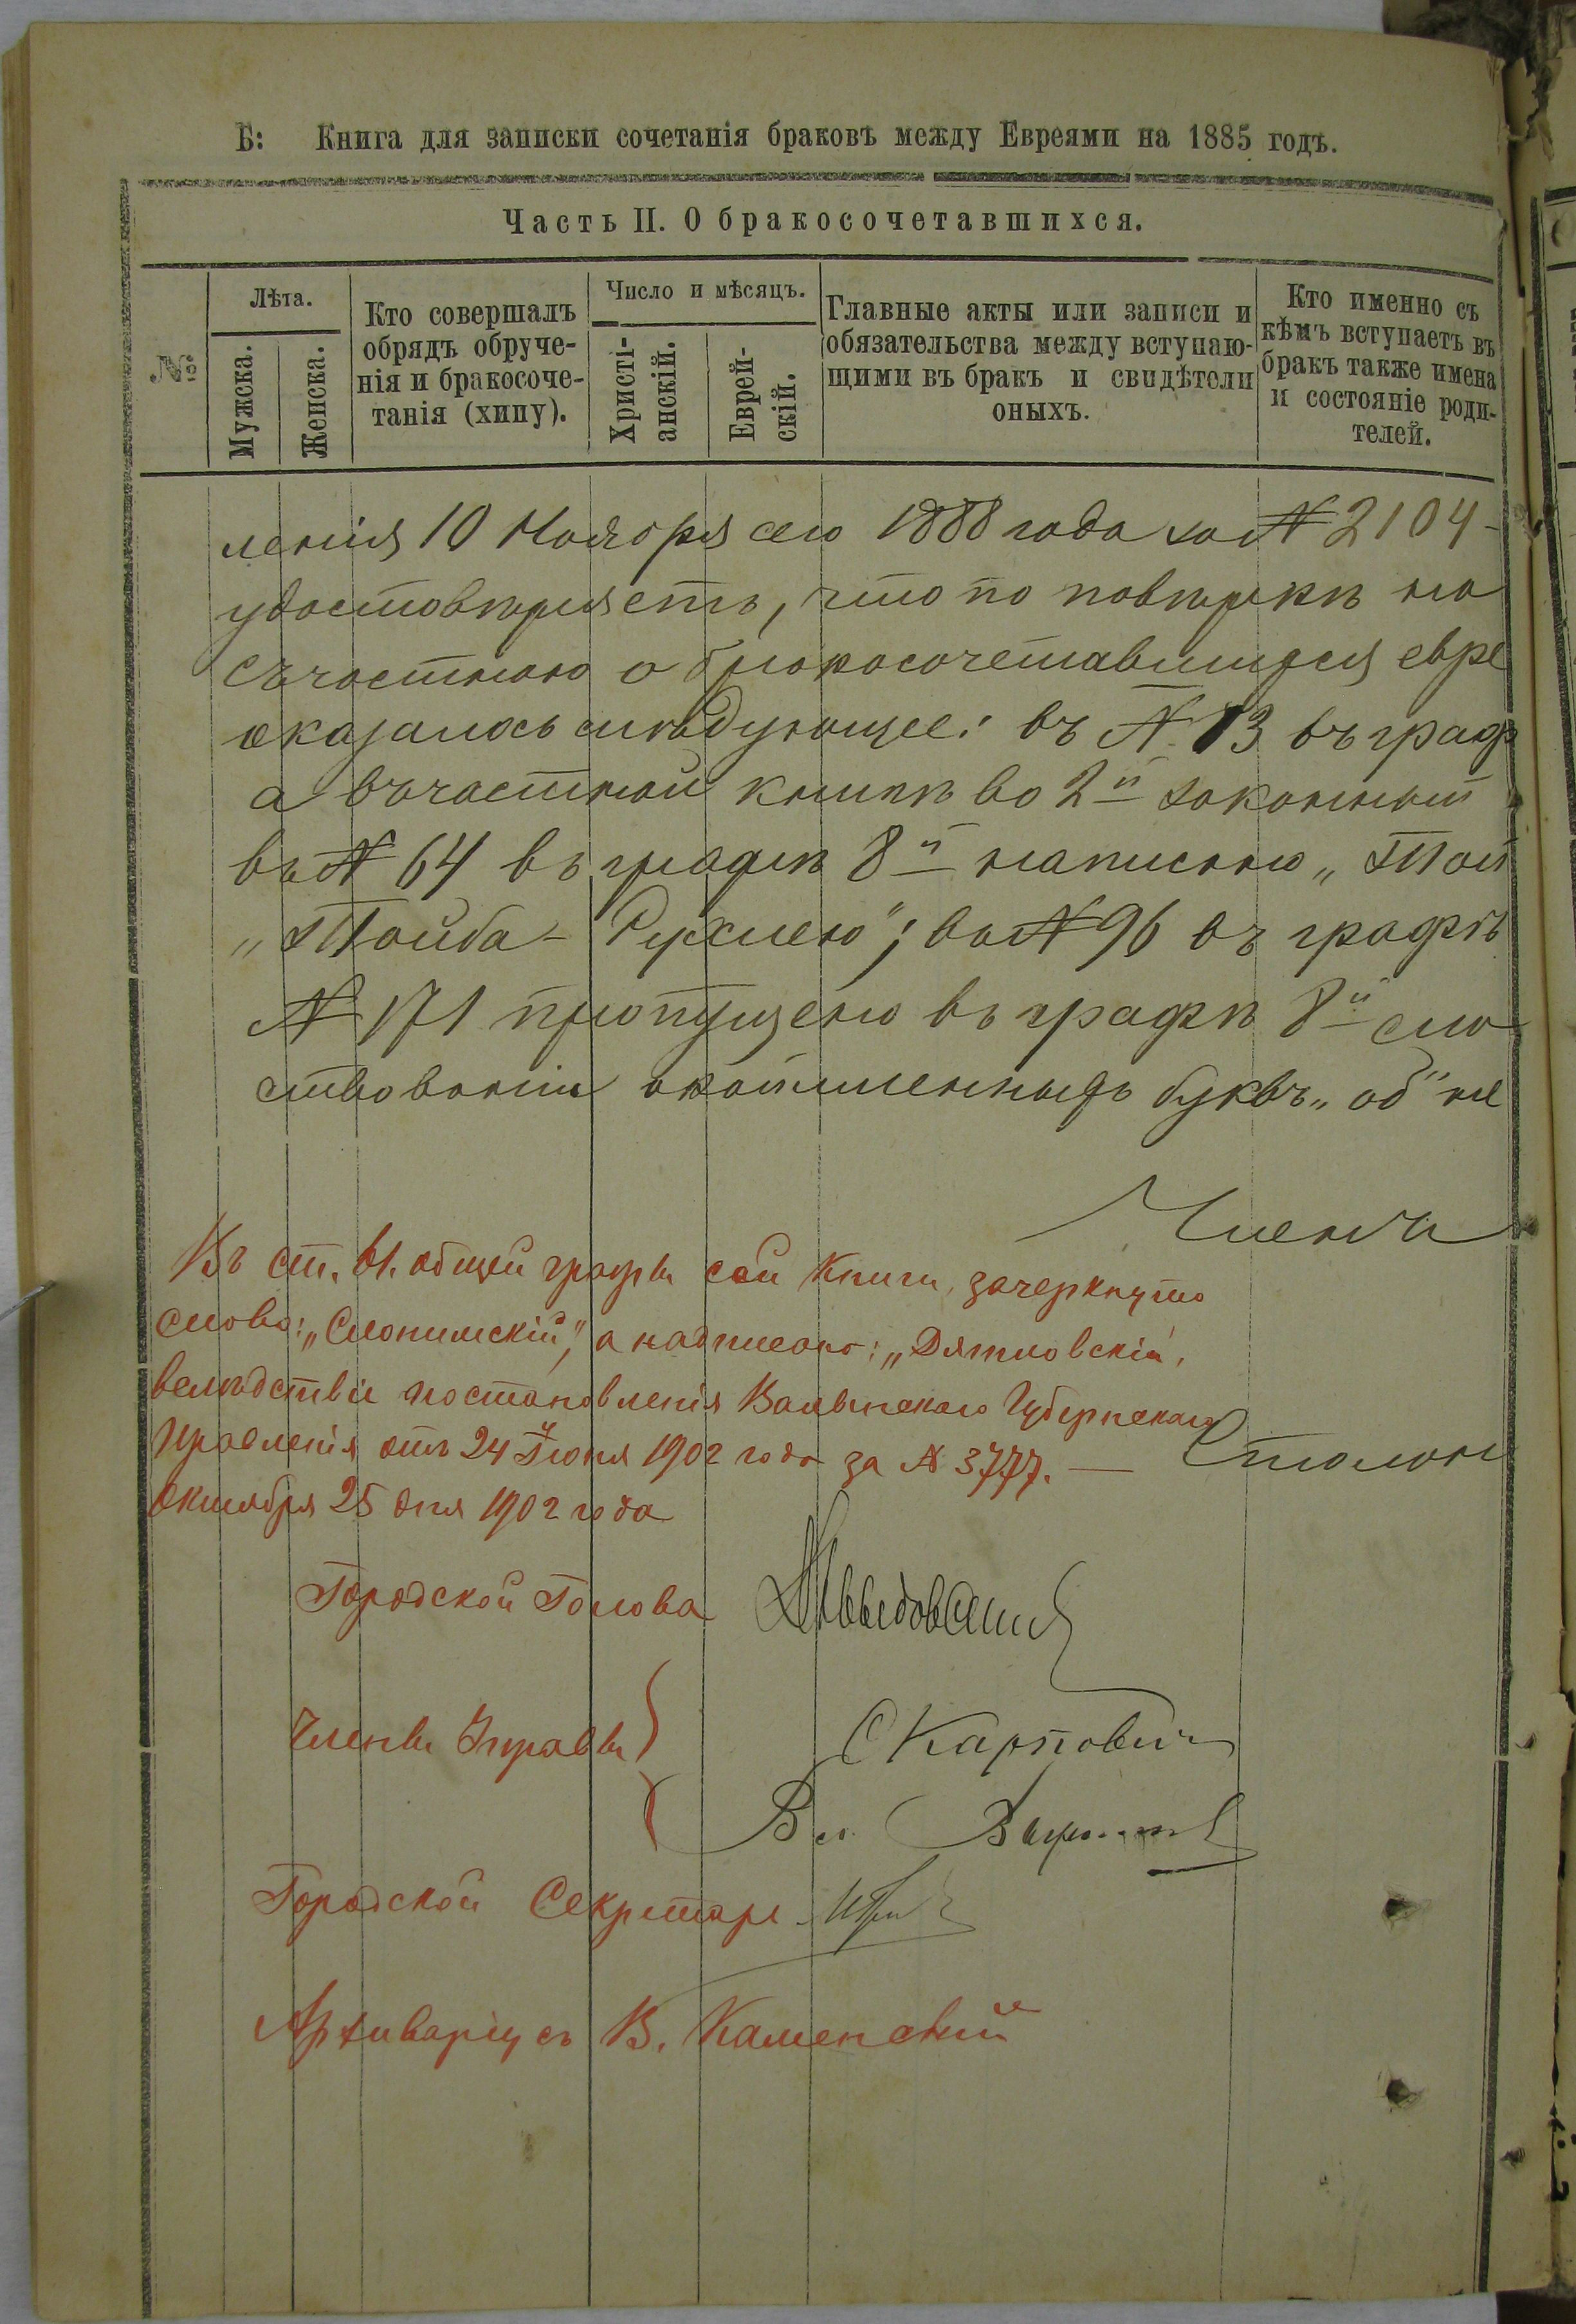 Б: Книга для записки сочетанія браковъ между Евреями на 1885 годъ.
Часть II. О бракосочетавшихся.
№
Лѣта.
Мужеска.
Женска.
Кто совершалъ
обрядъ обруче-
нія и бракосоче-
танія (хипу).
Число и мѣсяцъ.
Христі-
анскій.
Еврей-
скій.
Главные акты или записи и
обязательства между вступаю-
щими въ бракъ и свидѣтели
оныхъ.
Кто именно съ
кѣмъ вступаетъ въ
бракъ также имена
и состояніе роди-
телей.
ленія 10 Ноября сего 1888 года за № 2104-
удостовѣряетъ, что по повѣркѣ на
съ частною о бракосочетавшихся евре
оказалось слѣдующее: въ № 13 въ граф
а въ частной книгѣ во 2й законный
въ № 64 въ графѣ 8й написано „Той
„Тойба-Рухлею"; въ № 96 въ графѣ
№ 171 пропущено въ графѣ 8й сло
ствованіи окаймленныхъ буквъ „об" не
Члены
Въ ст. 61. общей графы сей Книги, зачеркнуто
слово: „Слонимскій", а надписано: „Дятловскій",
вслѣдствіе постановленія Волынскаго Губернскаго
Правленія отъ 24 Іюня 1902 года за № 3777. —
Октября 25 дня 1902 года
Городской Голова
Члены Управы
С Карпович
Вл.
Городской Секретарь
Архиваріусъ В. Каменскій